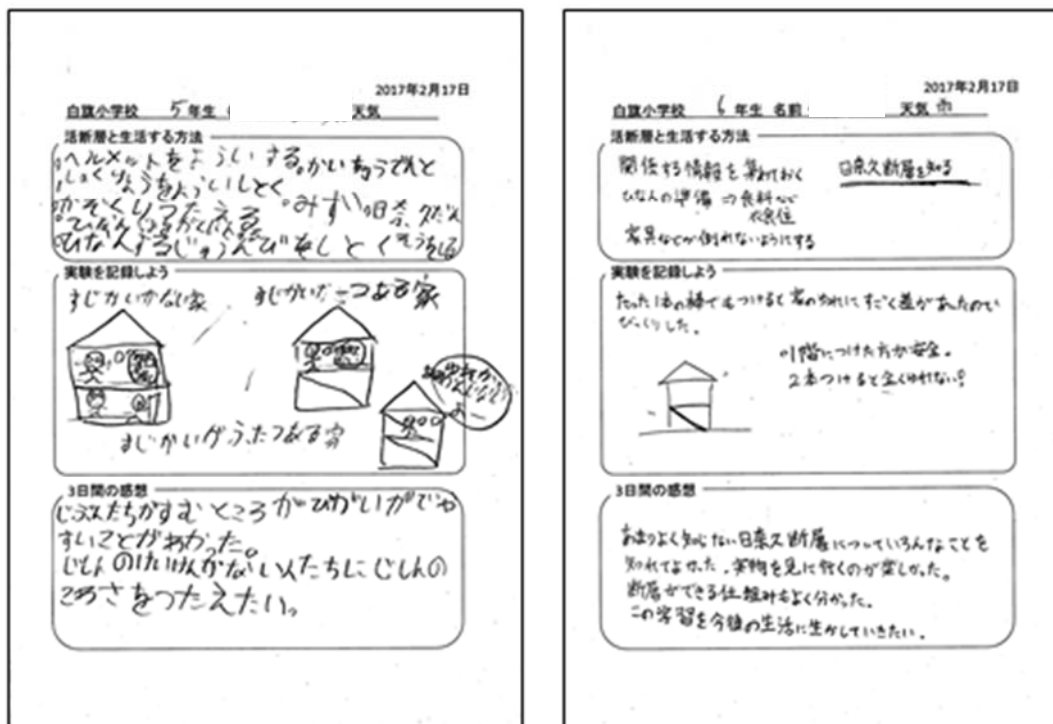 2017年2月17日
白旗小学校 5年生 天気
活断層と生活する方法
ヘルメットをよういする。かいちゅうでんと
しょくりょうをよういしとく。
かぞくにつたえる。みずい。日奈久だん
ひなんするじゅんびをしとく そうをしる
実験を記録しよう
すじかいがない家 すじかいが一つある家
すじかいがふたつある家
3日間の感想
じぶんたちがすむところがひがいがでや
すいことがわかった。
じしんのけいけんがない人たちにじしんの
こわさをつたえたい。
2017年2月17日
白旗小学校 6年生 名前 天気 雨
活断層と生活する方法
関係する情報を集めておく 日奈久断層を知る
ひなんの準備⇒食料など
衣食住
家具などが倒れないようにする
実験を記録しよう
たった1本の棒でもつけると家のゆれにすごく差があったので
びっくりした。
1階につけた方が安全。
2本つけると全くゆれない!
3日間の感想
あまりよく知らない日奈久断層についていろんなことを
知れてよかった。実物を見に行くのが楽しかった。
断層ができる仕組みもよく分かった。
この学習を今後の生活に生かしていきたい。